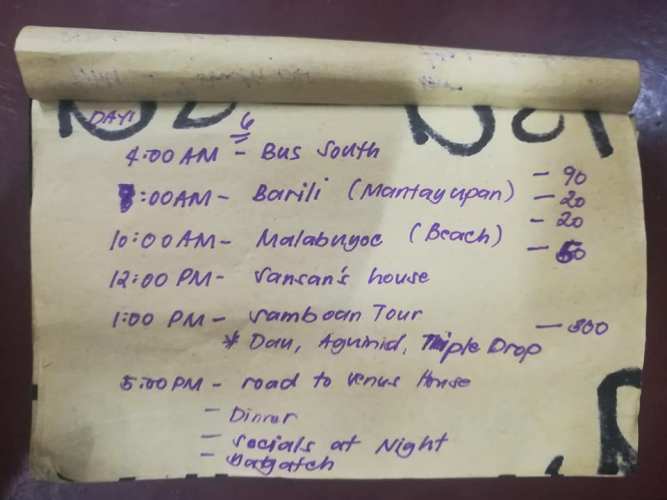 DAY1
6
4:00 AM - Bus South
- 90
:00AM - Barili (Mantayupan) - 20
- 20
10:00 AM - Malabuyoc (Beach) - 50
12:00 PM - Sansan's house
1:00 PM - Samboan Tour - 300
* Dau, Aguinid, Triple Drop
5:00 PM - road to Venus House
- Dinner
- Socials at Night